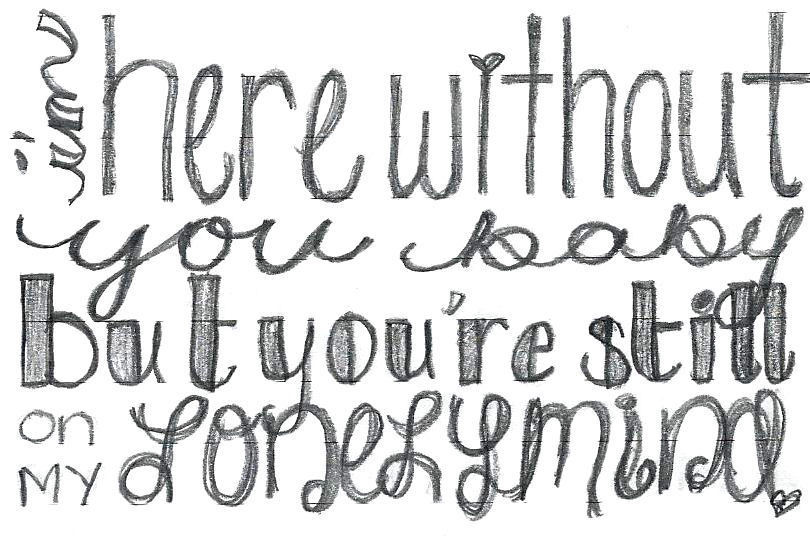 i'm here without
you baby
but you're still
on MY lonely mind